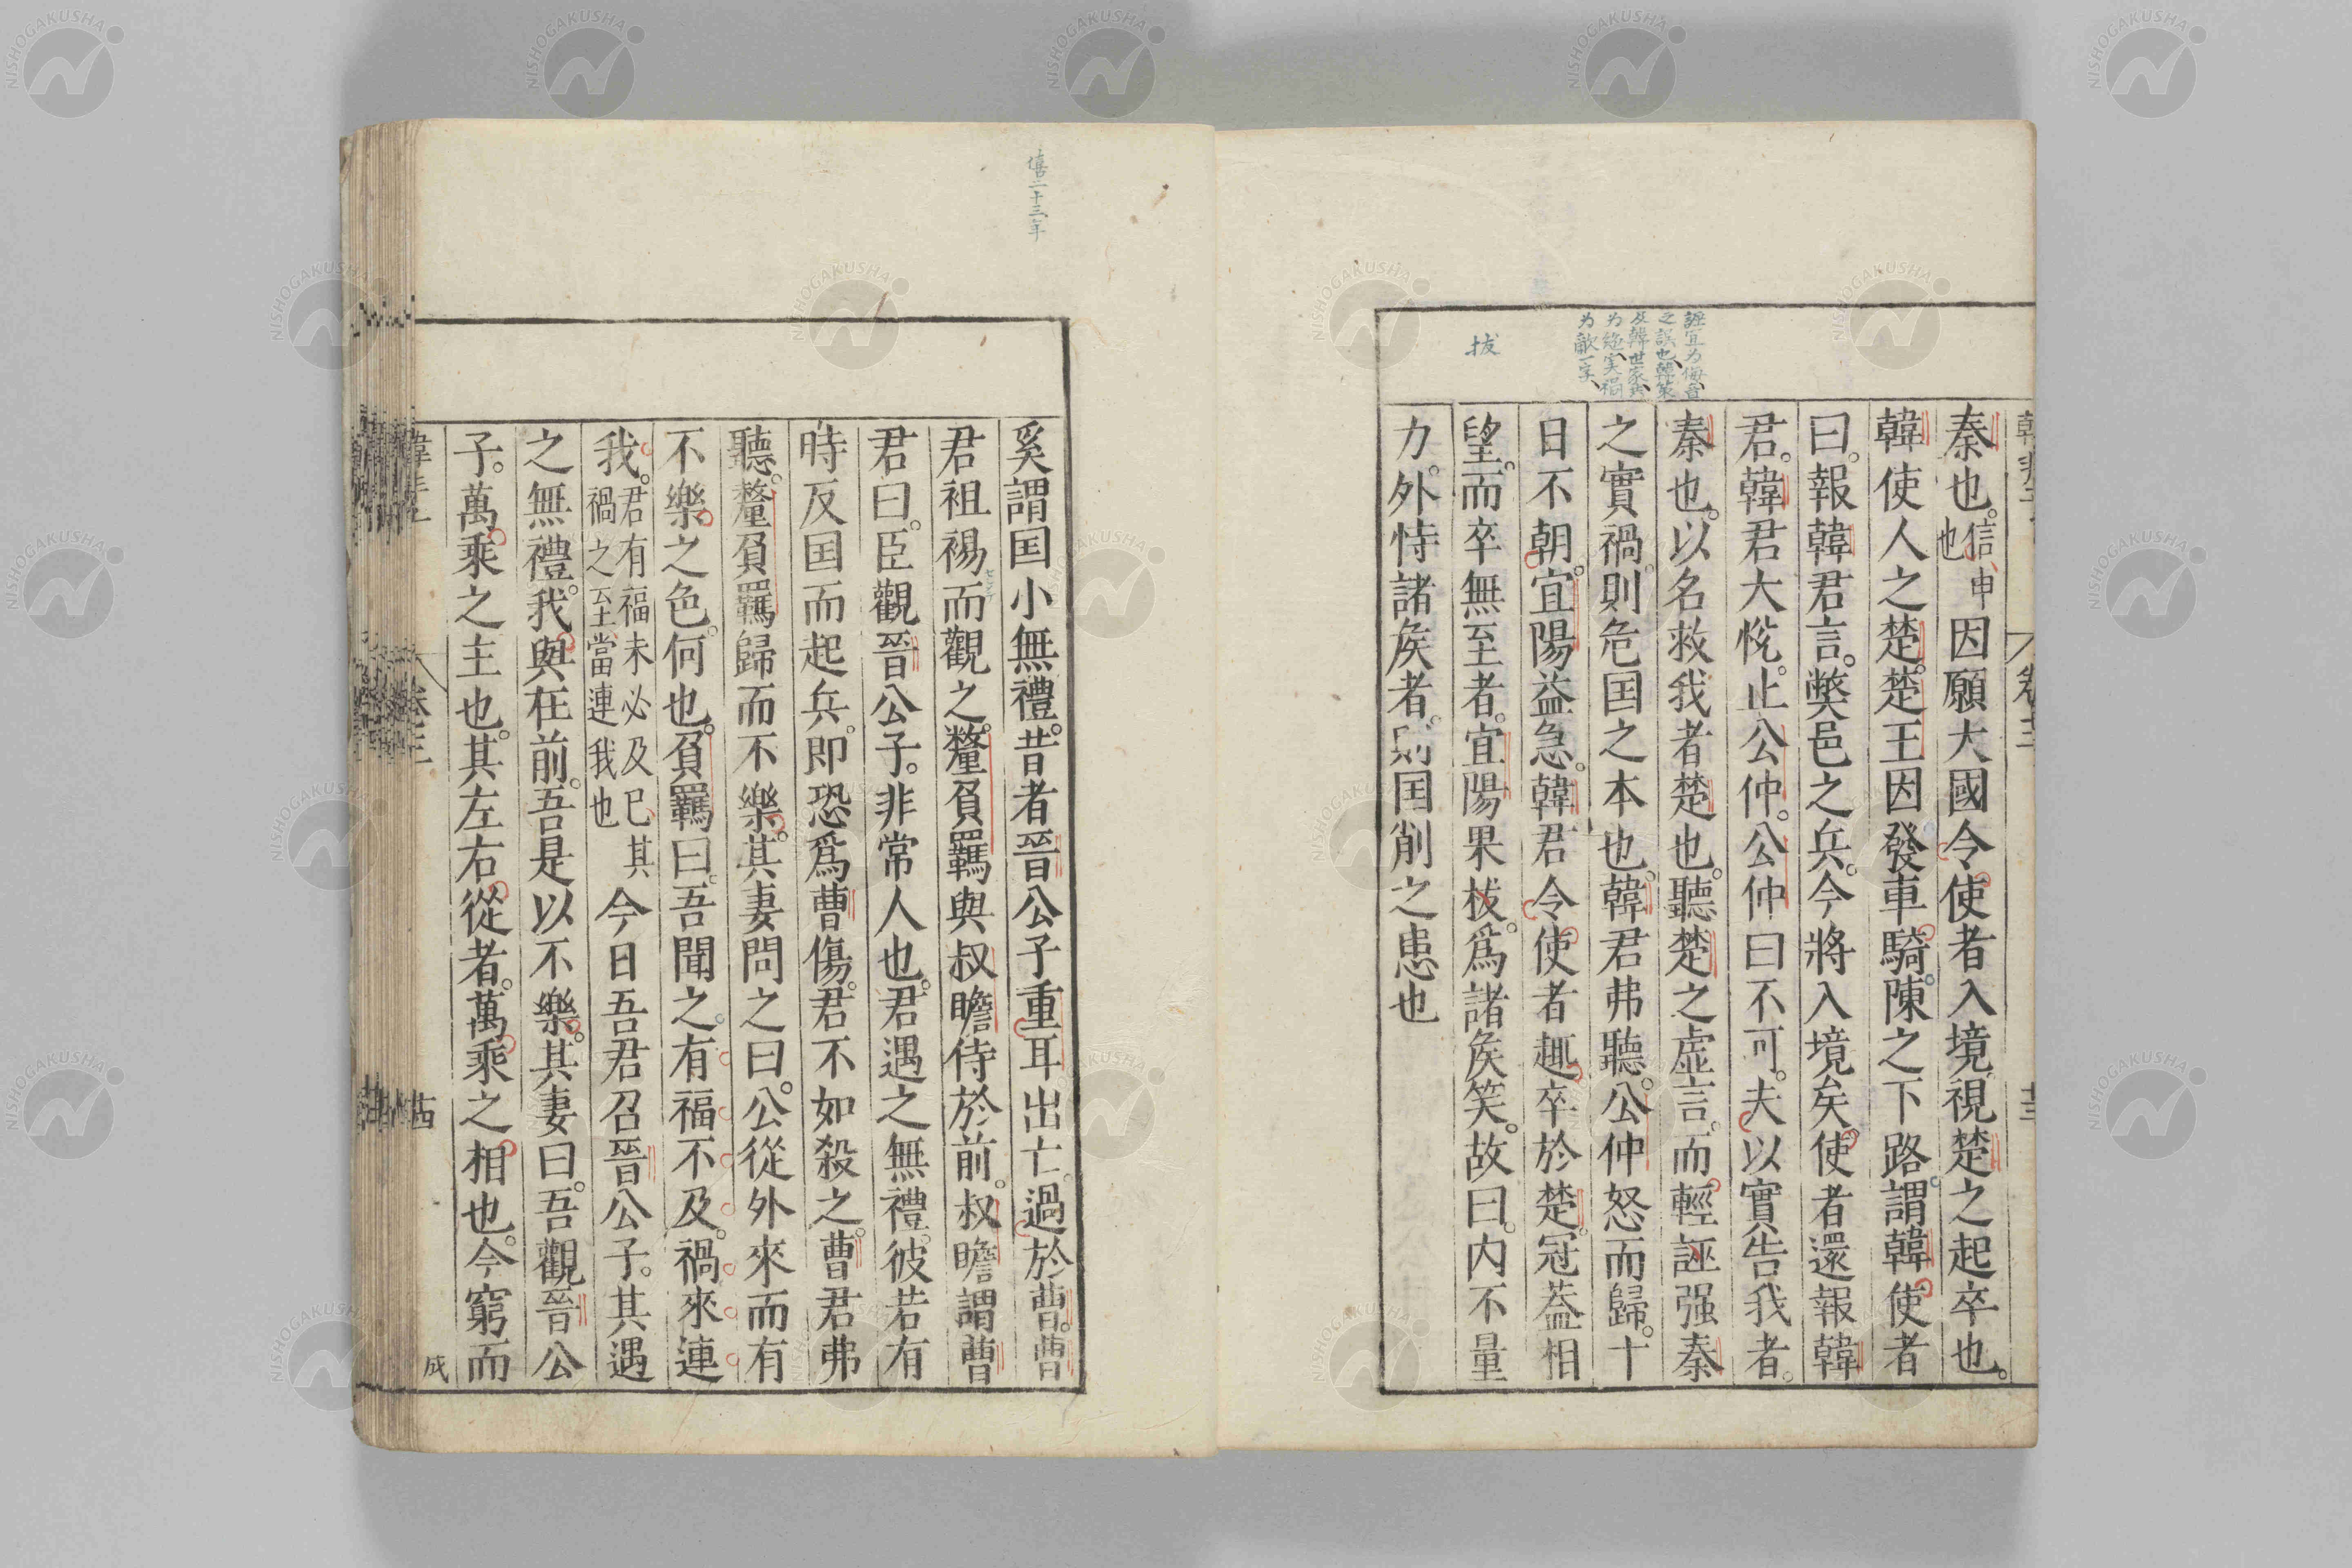 誣宜为侮音
之誤也韓策
及韓世家共
为絶実禍
为敵一字
拔
秦也信申也因願大國令使者入境視楚之起卒也
韓使人之楚楚王因發車騎陳之下路謂韓使者
曰報韓君言弊邑之兵今將入境矣使者還報韓
君韓君大悅止公仲公仲曰不可夫以實告我者
秦也以名救我者楚也聽楚之虛言而輕誣强秦
之實禍則危囯之本也韓君弗聽公仲怒而歸十
日不朝宜陽益急韓君令使者趣卒於楚冠葢相
望而卒無至者宜陽果拔爲諸矦笑故曰内不量
力外恃諸矦者則囯削之患也
僖二十三年
奚謂囯小無禮昔者晉公子重耳出亡過於曹曹
君袒裼而觀之釐負羈與叔瞻侍於前叔瞻謂曹
君曰臣觀晉公子非常人也君遇之無禮彼若有
時反囯而起兵即恐爲曹傷君不如殺之曹君弗
聽釐負羈歸而不樂其妻問之曰公從外來而有
不樂之色何也負羈曰吾聞之有福不及禍來連
我君有福未必及已其禍之至當連我也今日吾君召晉公子其遇
之無禮我與在前吾是以不樂其妻曰吾觀晉公
子萬乘之主也其左右從者萬乘之相也今窮而
成
NISHOGAKUSHA